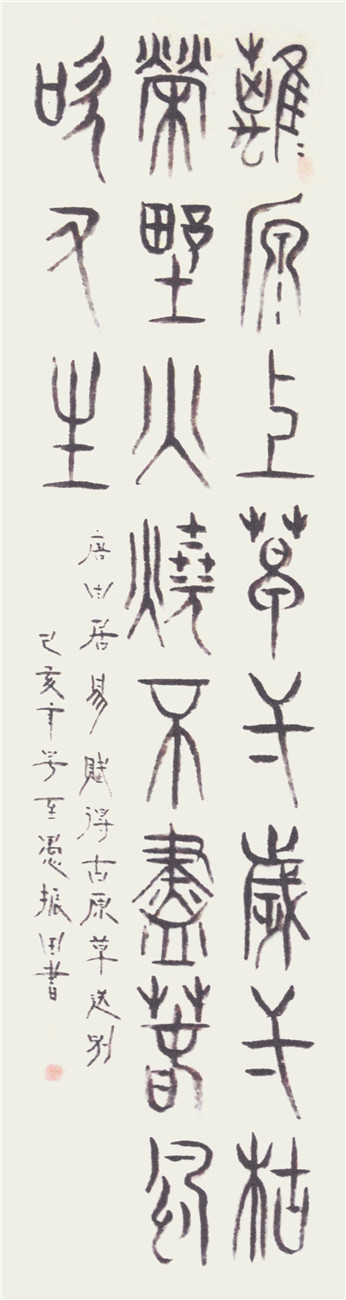 離離原上草一歲一枯
榮野火燒不盡春風
吹又生
唐白居易賦得古原草送别
己亥 至 振田書